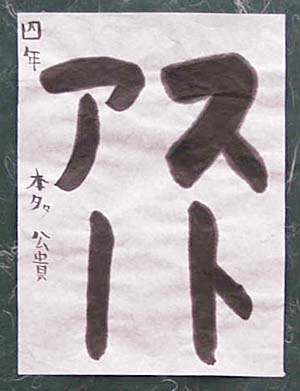 スト
アー
四年
本多 公貴